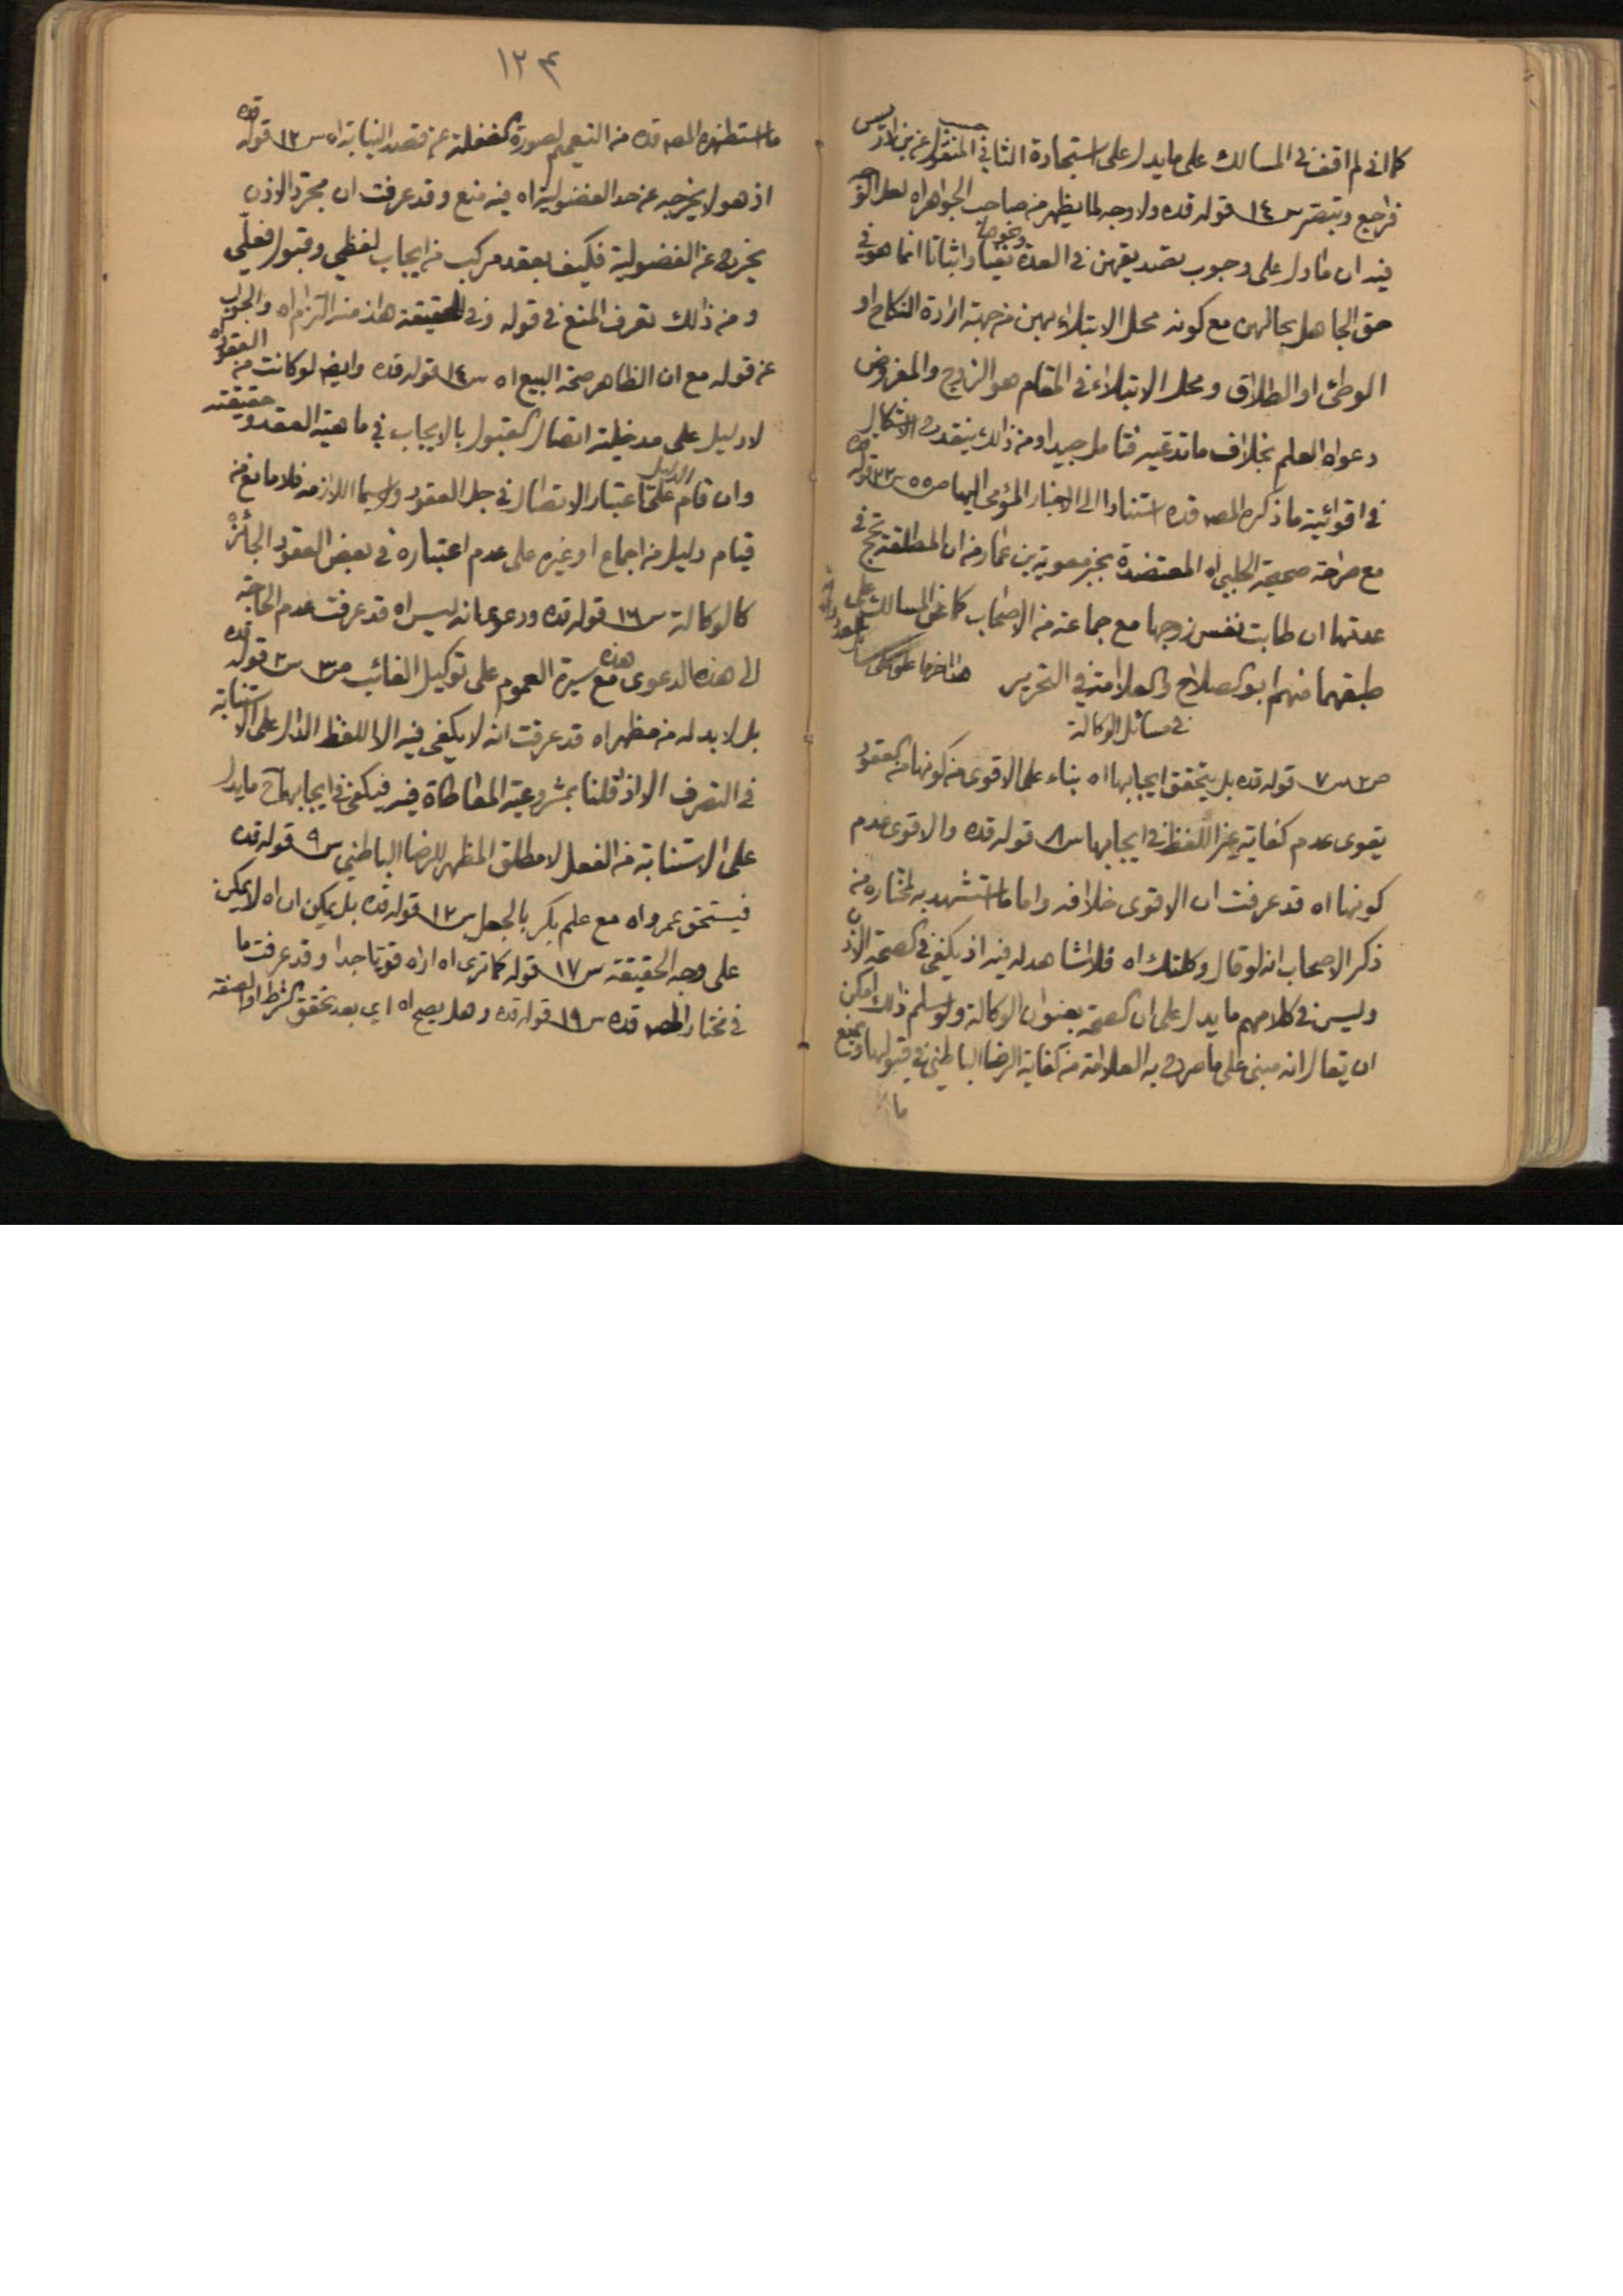 كما اني لم اقف في المسالك على ما يدل على استجادة الثاني المنقول عن بن ادريس
فراجع وتبصر س ١٤ قوله قده ولا وجه لما يظهر من صاحب الجواهر اه لعل الوجه
فيه ان ما دل على وجوب تصديقهن في العدة نفيا واثباتا انما هو في
حق الجاهل بحالهن مع كونه محل الابتلاء بهن من جهة ارادة النكاح او
الوطئ او الطلاق ومحل الابتلاء في المقام هو الزوج والمفروض
دعواه العلم بخلاف ما تدعيه فتامل جيدا ومن ذلك ينقدح الاشكال
في اقوائية ما ذكره المصه قده استنادا الى الاخبار المؤمى اليها ص ٥٥ س ٢٢ قوله قده
مع صراحة صحيحة الحلبي اه المعتضدة بخبر معوية بن عمار من ان المطلقة تحج في
عدتها ان طابت نفس زوجها مع جماعة من الاصحاب كما عن المسالك على
طبقهما منهم ابو الصلاح والعلامة في التحرير هذا اخر ما علق على
في مسائل الوكالة
ص ٢ س ٧ قوله قده بل يتحقق ايجابها اه بناء على الاقوى من كونها من العقود
يقوى عدم كفاية غير اللفظ في ايجابها س ٨ قوله قده والاقوى عدم
كونها اه قد عرفت ان الاقوى خلافه واما ما استشهد به لمختاره من
ذكر الاصحاب انه لو قال وكلتك اه فلا شاهد له فيه اذ يكفي في الصحة الاذن
وليس في كلامهم ما يدل على ان الصحة بعنوان الوكالة ولو سلم ذلك امكن
ان يقال انه مبني على ما صرح به العلامة من كفاية الرضا الباطني في قبولها ونمنع
ما
١٢٤
ما استظهره المصه قده من التعميم لصورة الغفلة عن قصد النيابة اه س ١٢ قوله قده
اذ هو لا يخرجه عن حد الفضولية اه فيه منع وقد عرفت ان مجرد الاذن
يخرج عن الفضولية فكيف بعقد مركب من ايجاب لفظي وقبول فعلي
ومن ذلك تعرف المنع في قوله وفي الحقيقة هذا منه التزام اه والجواب
عن قوله مع ان الظاهر صحة البيع اه س ١٤ قوله قده وايضا لو كانت من العقود اه
لا دليل على مدخلية اتصال القبول بالايجاب في ماهية العقد وحقيقته
وان قام الدليل على اعتبار الاتصال في جل العقود ولاسيما اللازمه فلا مانع من
قيام دليل من اجماع او غيره على عدم اعتباره في بعض العقود الجائزة
كالوكالة س ١٦ قوله قده ودعوى انه ليس اه قد عرفت عدم الحاجة
الى هذه الدعوى مع هذه سيرة العموم على توكيل الغائب ص ٣ س ٢ قوله قده
بل لا بد له من مظهر اه قد عرفت انه لا يكفي فيه الا اللفظ الدال على الاستنابة
في التصرف الا اذا قلنا بمشروعية المعاطاة فيه فيكفي في ايجابها ح ما يدل
على الاستنابة من الفعل لا مطلق المظهر للرضا الباطني س ٩ قوله قده
فيستحق عمرو اه مع علم بكر بالجعل س ١٢ قوله قده بل يمكن ان اه لا يمكن
على وجه الحقيقة س ١٧ قوله كما ترى اه اراه قويا جدا وقد عرفت ما
في مختار المصه قده س ١٩ قوله قده وهل يصح اه اي بعد تحقق الشرط او الصفة